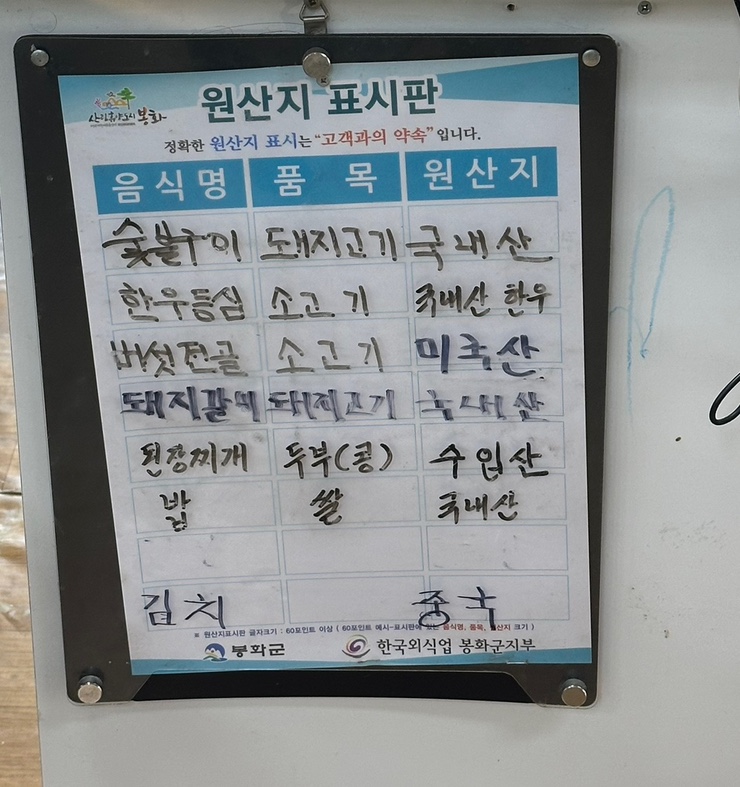 산림휴양도시 봉화
원산지 표시판
정확한 원산지 표시는 "고객과의 약속" 입니다.
음식명 품목 원산지
숯불구이 돼지고기 국내산
한우등심 소고기 국내산 한우
버섯전골 소고기 미국산
돼지갈비 돼지고기 국내산
된장찌개 두부(콩) 수입산
밥 쌀 국내산
김치 중국
※ 원산지표시판 글자크기 : 60포인트 이상 ( 60포인트 예시-표시판에 있는 음식명, 품목, 원산지 크기 )
봉화군 한국외식업 봉화군지부